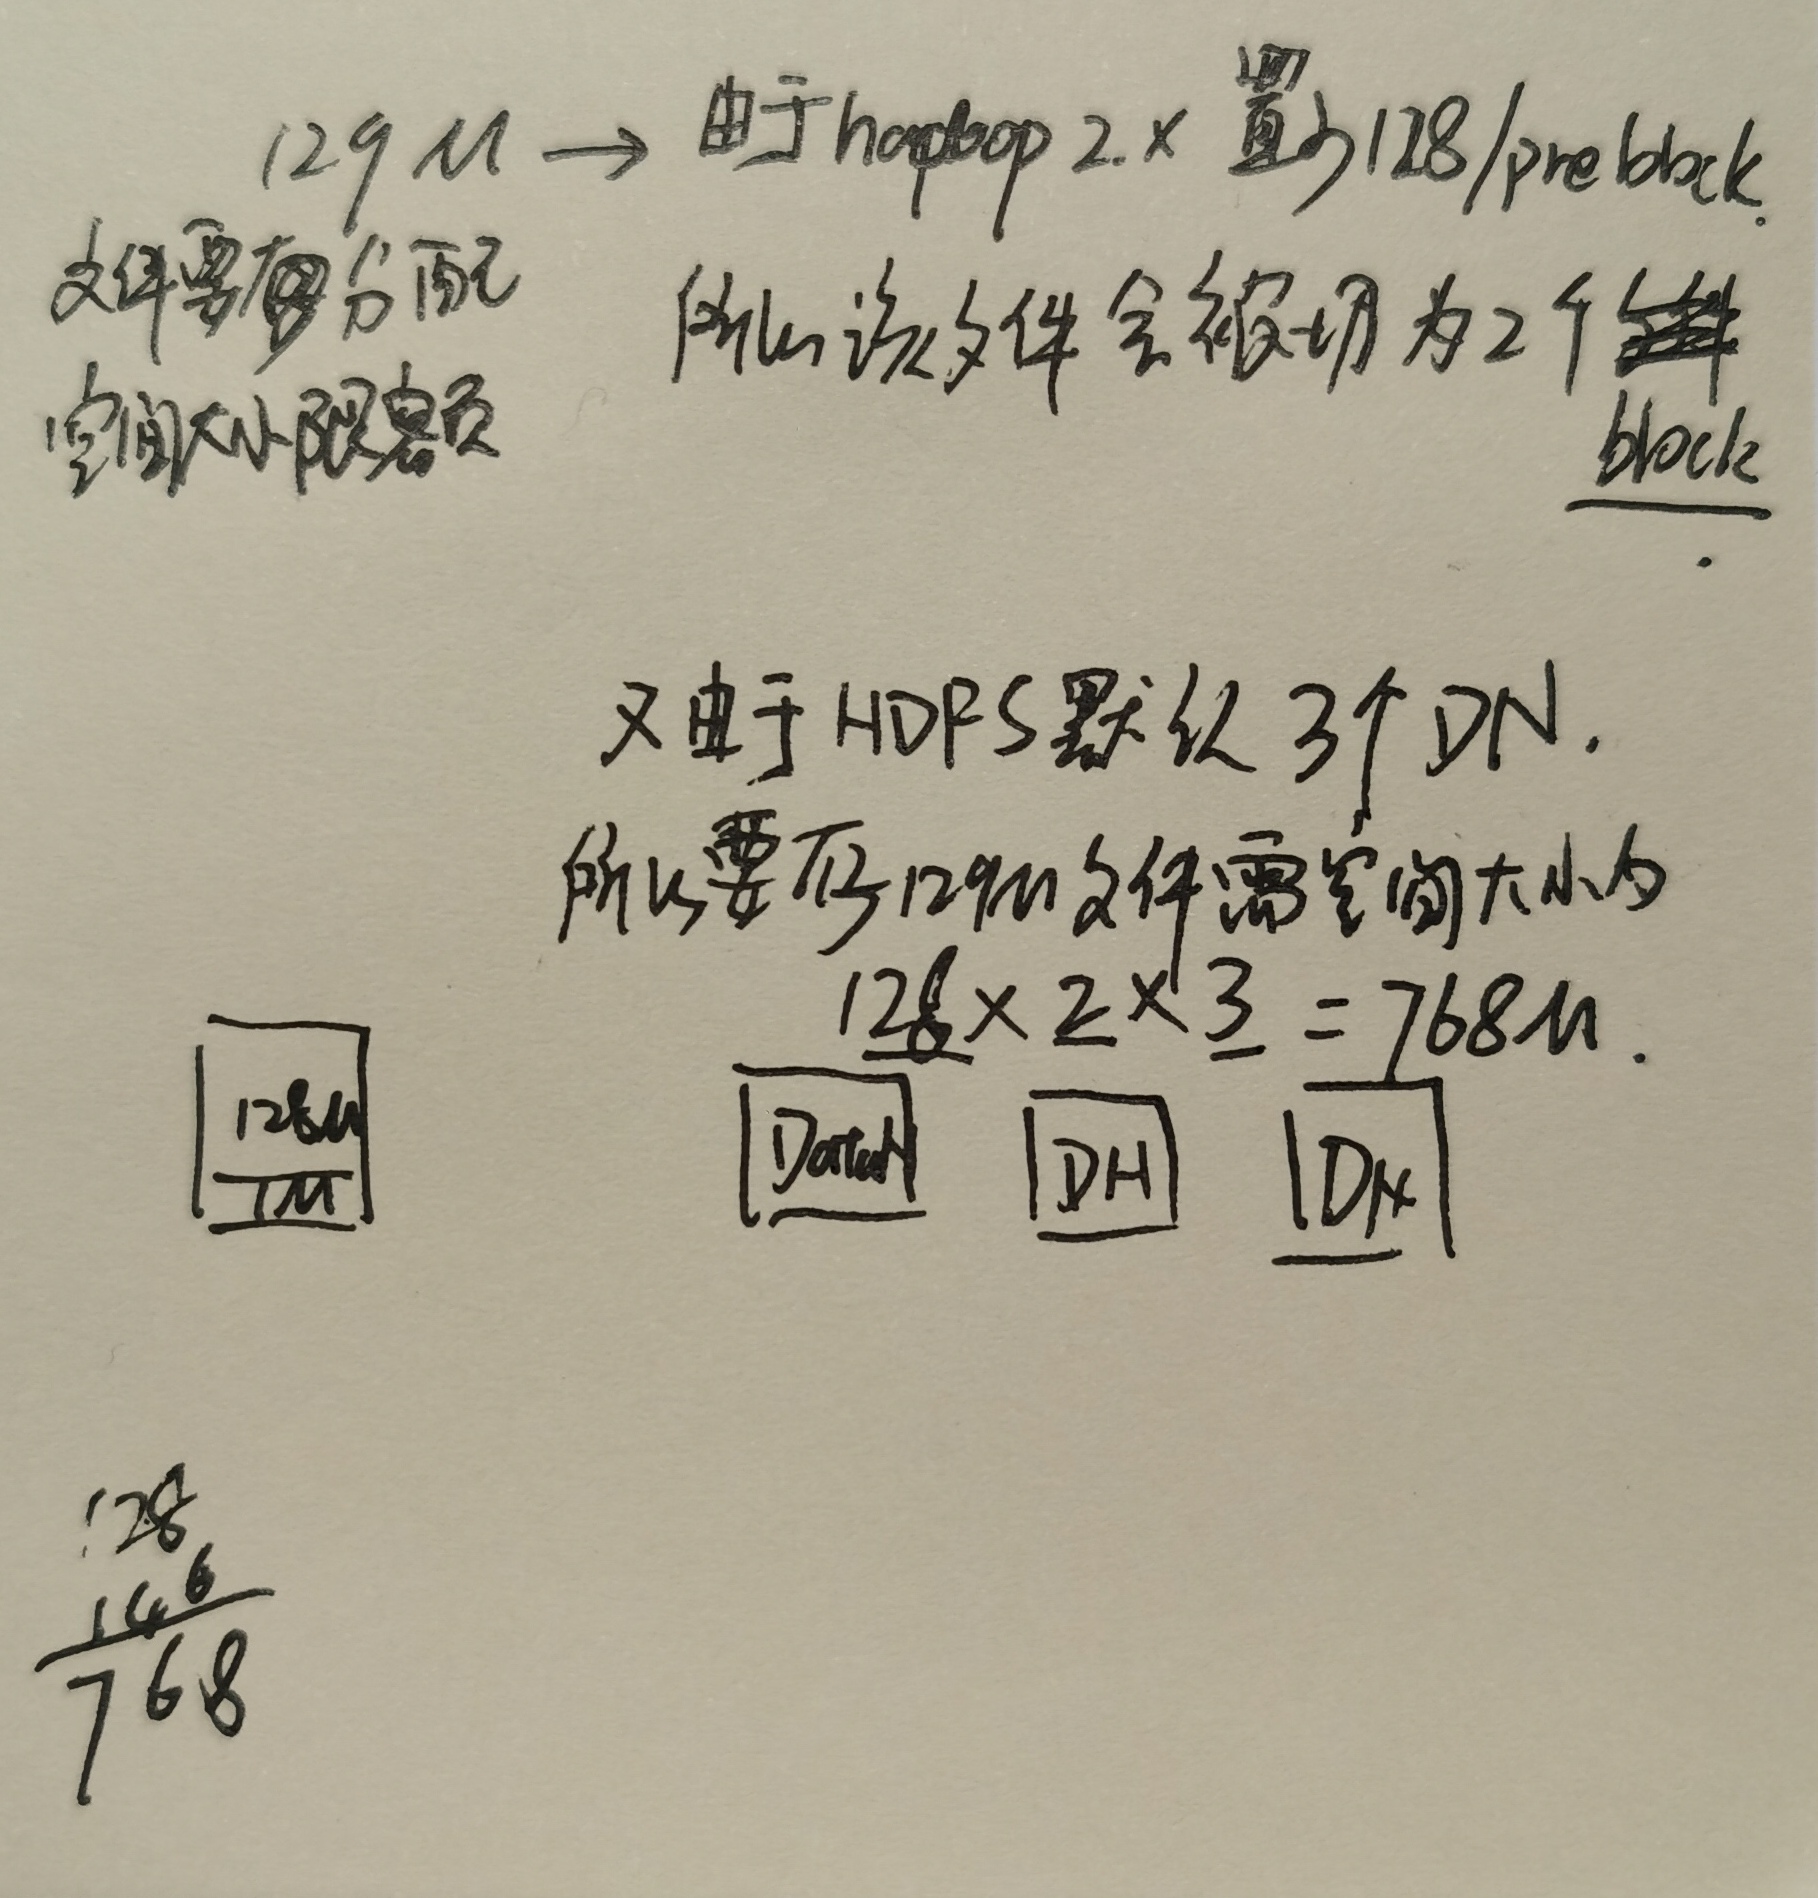 129M → 由于hadoop 2.x 置为128/pre block.
文件要分配
空间大小限额
所以该文件会被切为2个
block
又由于HDFS默认3个DN.
所以要存129M文件需空间大小为
128×2×3=768M.
128M
1M
DataN
DN
DN
128
146
768